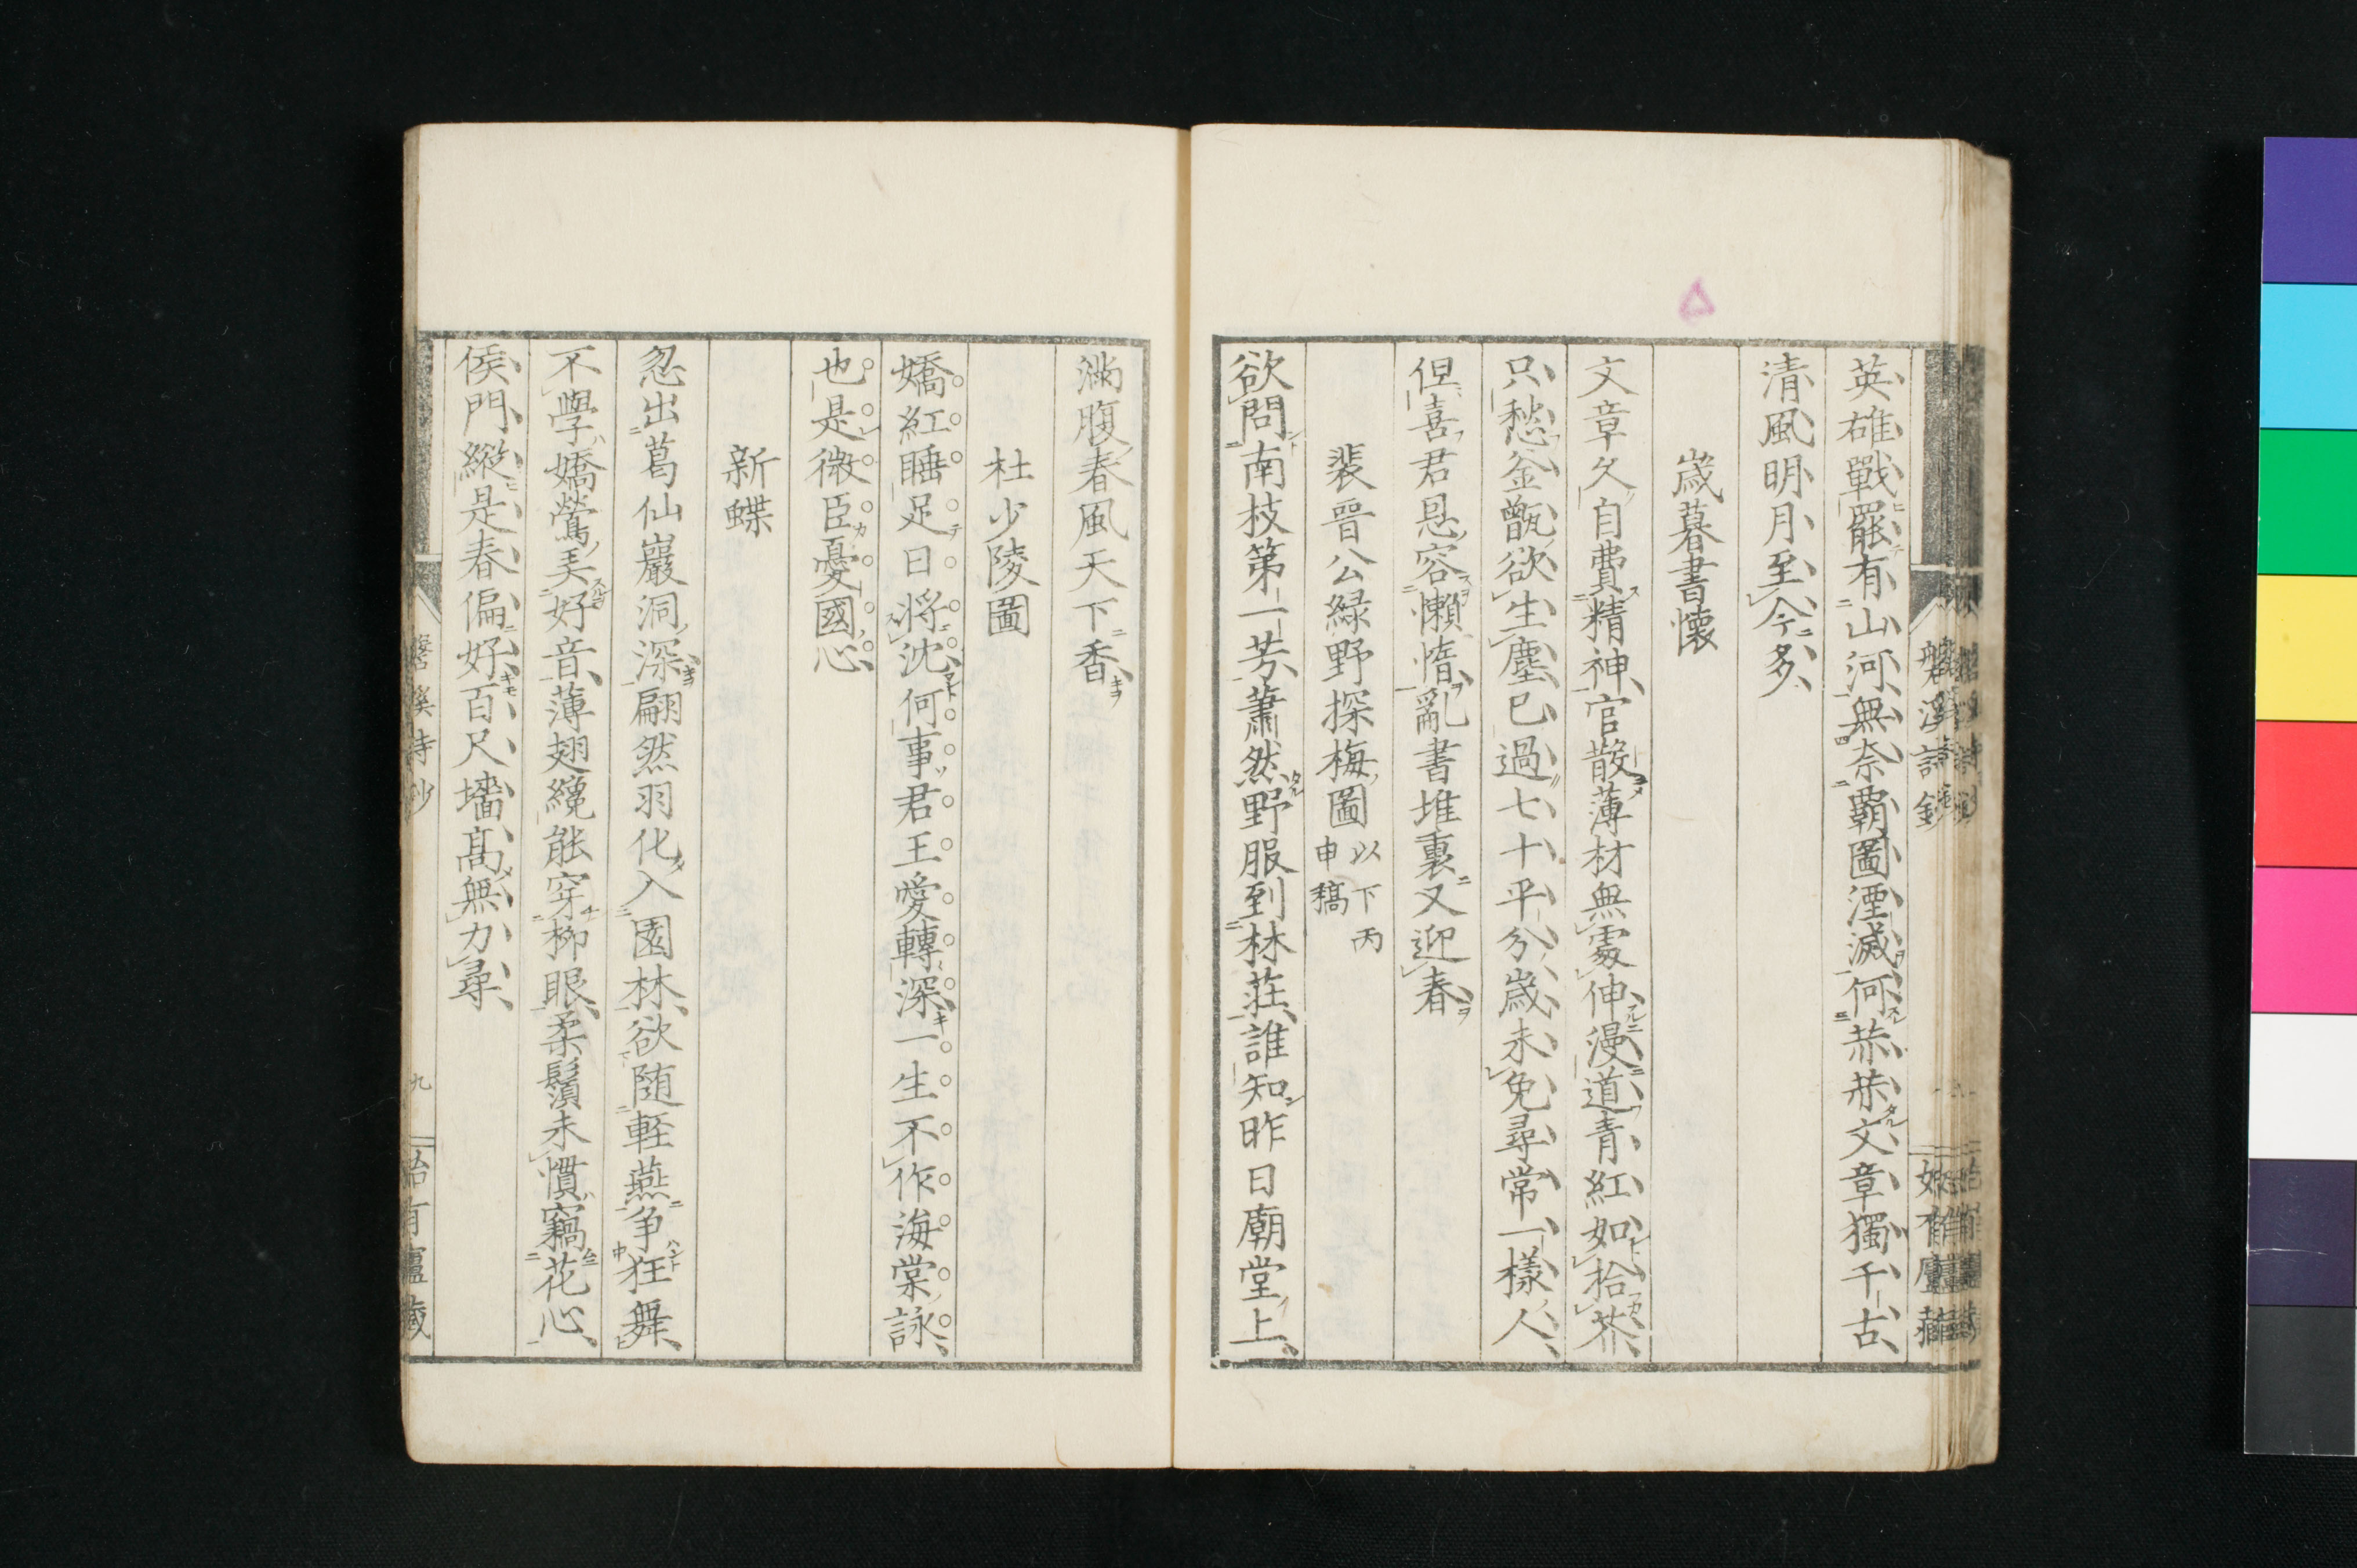 英雄戰罷有山河無奈覇圖湮滅何赫赫文章獨千古
清風明月至今多
歳暮書懷
文章久自費精神官散薄材無處伸漫道青紅如拾芥
只愁釜甑欲生塵已過七十平分歳未免尋常一樣人
但喜君恩容懶惰亂書堆裏又迎春
裴晋公緑野探梅圖 以下丙申稿
欲問南枝第一芳蕭然野服到林莊誰知昨日廟堂上
滿腹春風天下香
杜少陵圖
嬌紅睡足日將沈何事君王愛轉深一生不作海棠詠
也是微臣憂國心
新蝶
忽出葛仙巖洞深翩然羽化入園林欲随軽燕争狂舞
不學嬌鶯美好音薄翅纔能穿柳眼柔鬚未慣竊花心
侯門縱是春偏好百尺墻髙無力尋
九